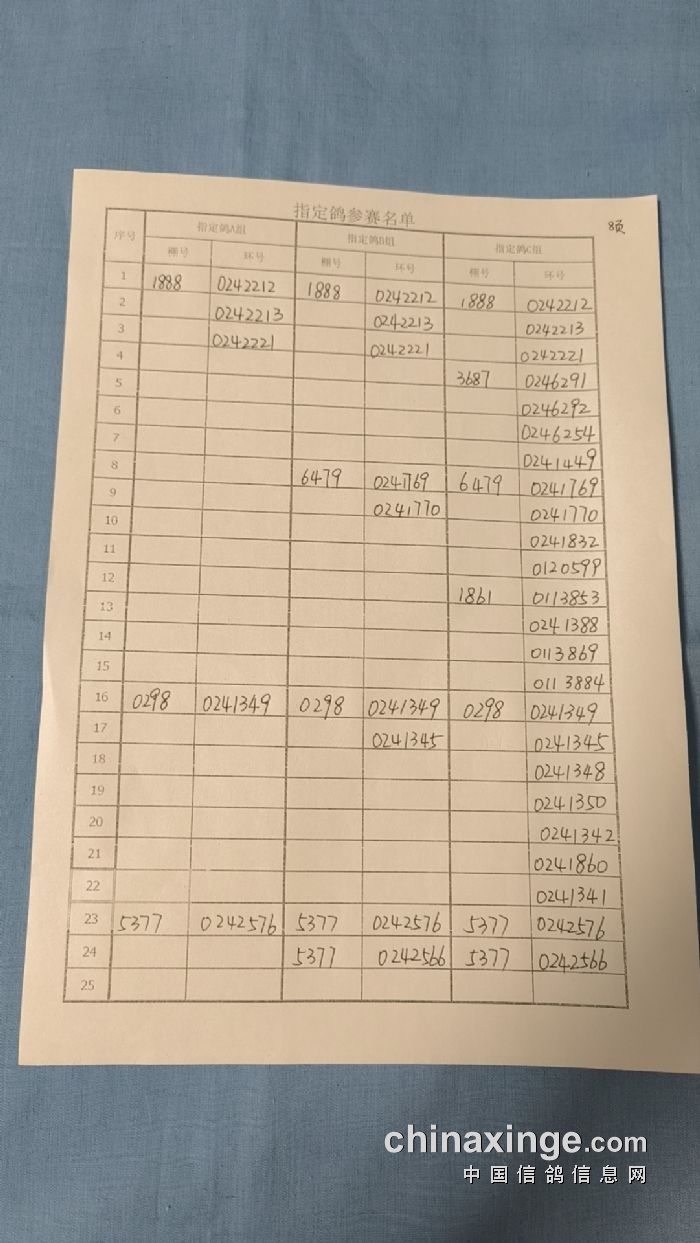 指定鸽参赛名单 8页
序号 指定鸽A组 指定鸽B组 指定鸽C组
棚号 环号 棚号 环号 棚号 环号
1 1888 0242212 1888 0242212 1888 0242212
2 0242213 0242213 0242213
3 0242221 0242221 0242221
4 3687 0246291
5 0246292
6 0246254
7 0241449
8 6479 0241769 6479 0241769
9 0241770 0241770
10 0241832
11 0120599
12 1861 0113853
13 0241388
14 0113869
15 0113884
16 0298 0241349 0298 0241349 0298 0241349
17 0241345 0241345
18 0241348
19 0241350
20 0241342
21 0241860
22 0241341
23 5377 0242576 5377 0242576 5377 0242576
24 5377 0242566 5377 0242566
25
chinaxinge.com
中国信鸽信息网